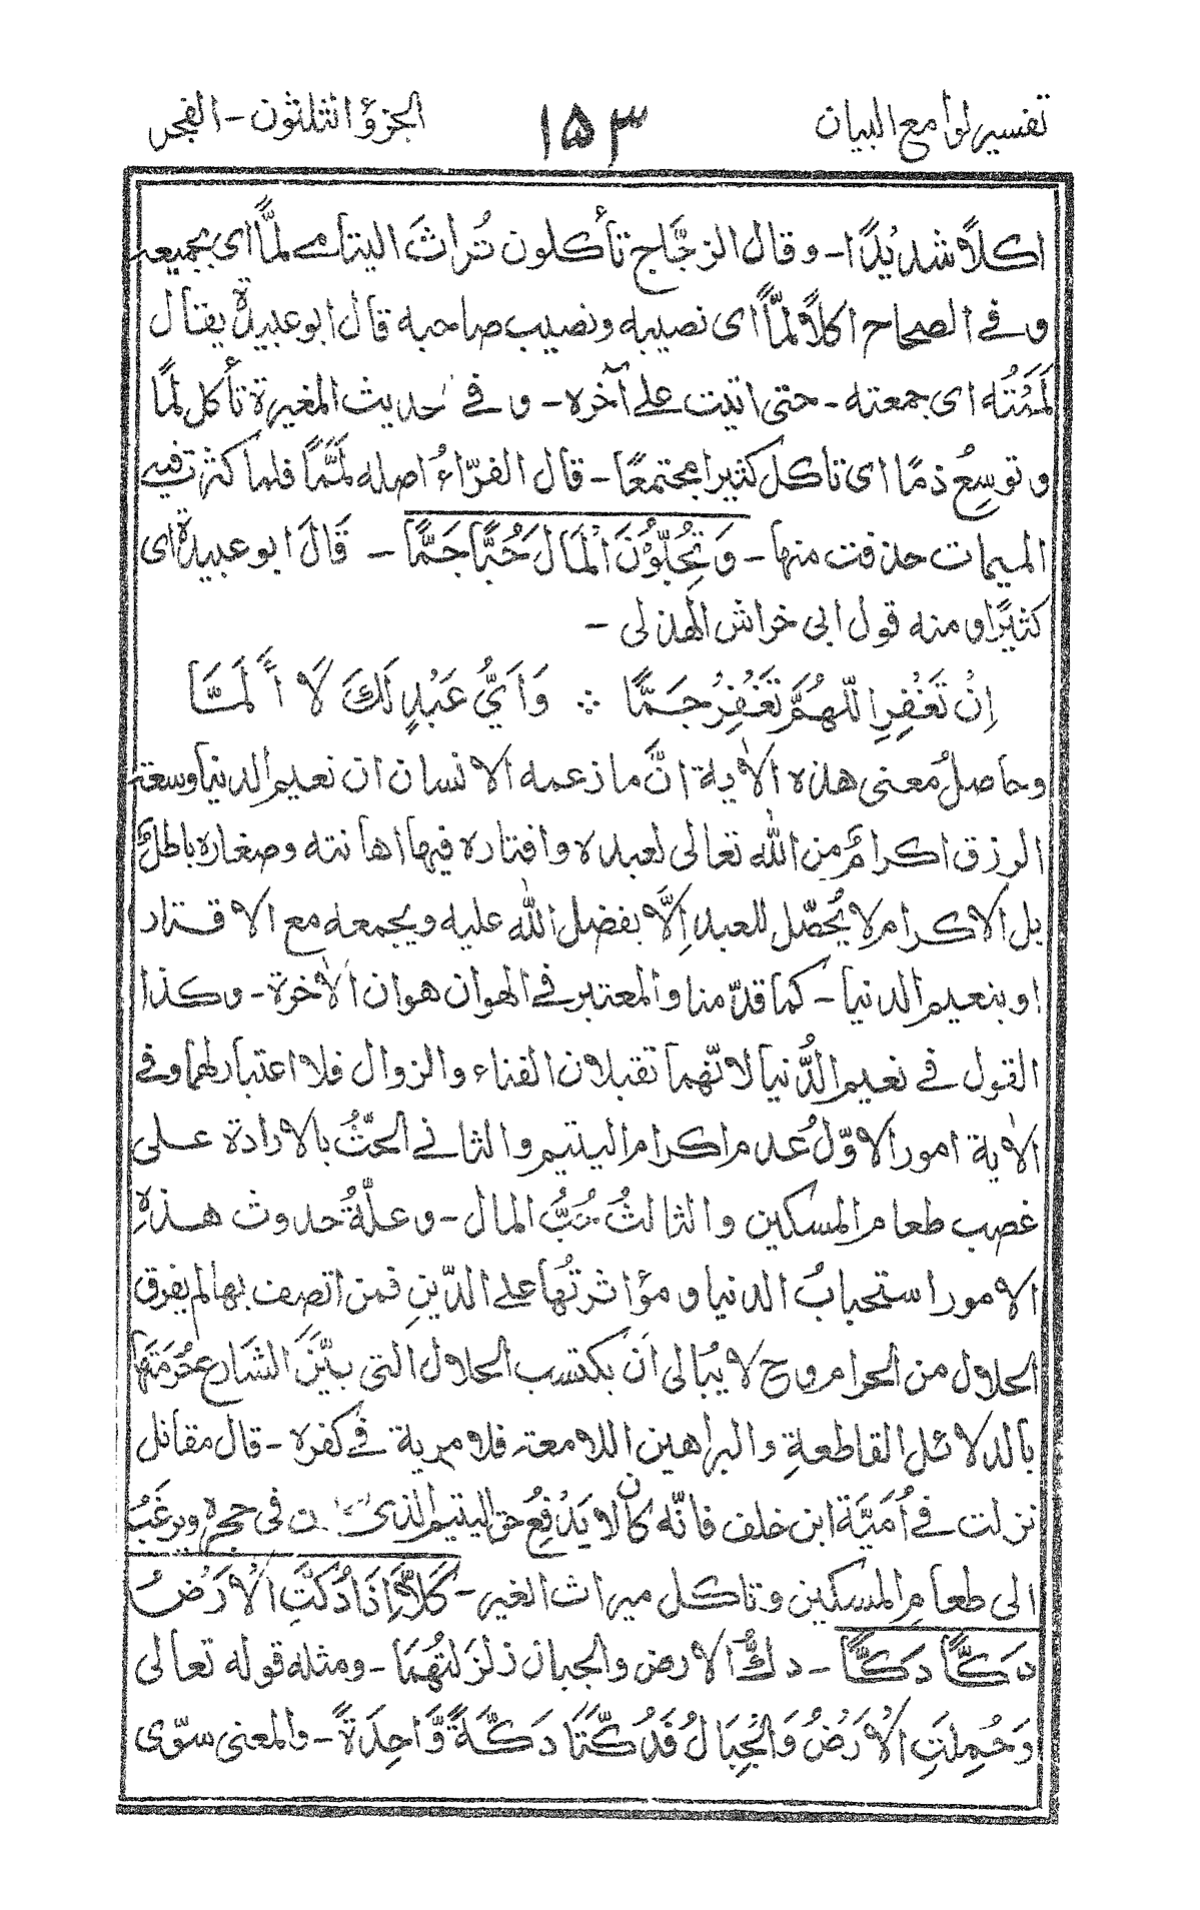 تفسير لوامع البيان ١٥٣ الجزؤ الثلثون - الفجر
اكلاً شديُدًا - وقال الزجَّاج تأكلون تُراثَ اليتامے لمًّا اى بجميعه
وفے الصحاح اكلاً لمًّا اى نصيبه ونصيب صاحبه قال ابو عبيدة يقال
لَمَمْتُه اى جمعته - حتى اتيت علے آخره - وفے حديث المغيرة تأكل لمًّا
وتوسِعُ ذمًا اى تاكل كثيرا مجتمعًا - قال الفرّاءُ اصله لَمَّمًا فلما كثرت فيه
الميمات حذفت منها - وَتُحِبُّوْنَ الْمَالَ حُبًّا جَمًّا - قَالَ ابو عبيدة اى
كثيرًا ومنه قول ابى خراش الهذلى -
اِنْ تَغْفِرِ اللّهُمَّ تَغْفِرُ جَمًّا ⁘ وَاَيُّ عَبْدٍ لَكَ لَا أَلَمَّا
وحاصلُ معنى هذه الاٰية انَّ ما زعمه الانسان ان نعيم الدنيا وسعة
الرزق اكرامٌ من الله تعالى لعبده واقتاره فيها اهانته وصغاره باطلٌ
بل الاكرام لا يُحصّل للعبد اِلَّا بفضل الله عليه ويجمعه مع الاقتار
او بنعيم الدنيا - كما قدّمنا والمعتبر فے الهوان هوان الاٰخرة - وكذا
القول فے نعيم الدُّنيا لانّهما تقبلان الفناء والزوال فلا اعتبار لهما وفے
الاٰية امور الاوّلُ عدم اكرام اليتيم والثانے الحثُّ بالارادة على
غصب طعام المسكين والثالثُ حُبُّ المال - وعلّةُ حدوث هذهِ
الامور استحبابُ الدنيا ومؤاثرتُها علے الدّينِ فمن اتصف بها لم يفرق
الحلال من الحرام وح لا يُبالى اَن يكتسب الحلال التى بيَّنَ الشارع حُرمَتَها
بالدلائل القاطعةِ والبراهين اللامعة فلا مرية فے كفره - قال مقاتل
نزلت فے اُمَيَّة ابن خلف فانّه كان لا يَدْفِعُ حق اليتيم الذى فى حجره ويرغَبُ
الى طعامِ المسكين وتاكل ميراث الغير - كَلَّا اِذَا دُكَّتِ الْاَرْضُ
دَكًّا دَكًّا - دكُّ الارض والجبان زلزلتُهُمَا - ومثله قوله تعالى
وَحُمِلَتِ الْاَرْضُ وَالْجِبَالُ فَدُكَّتَا دَكَّةً وَّاحِدَةً - والمعنى سوّى